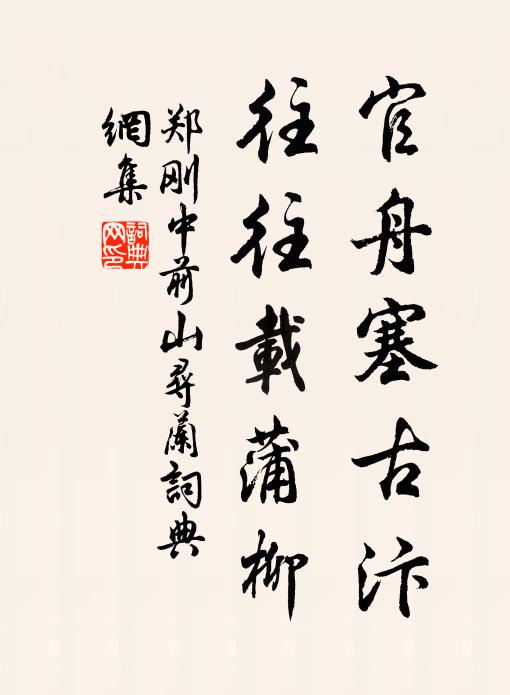 官舟塞古汴
往往載蒲柳
郑刚中前山尋蘭詞典
網集
詞典网印